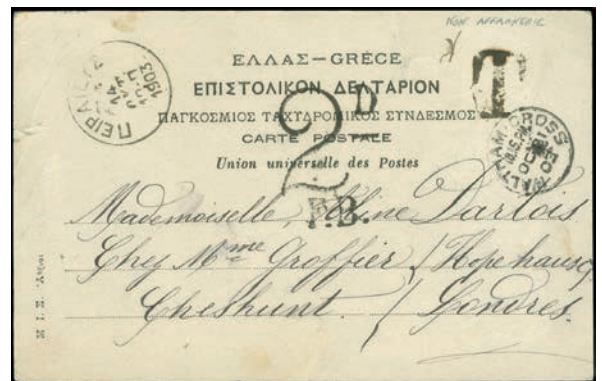 NON AFFRANCHIE
T
ΠΕΙΡΑΙΕΥΣ
1903
ΕΛΛΑΣ—GRÈCE
ΕΠΙΣΤΟΛΙΚΟΝ ΔΕΛΤΑΡΙΟΝ
ΠΑΓΚΟΣΜΙΟΣ ΤΑΧΥΔΡΟΜΙΚΟΣ ΣΥΝΔΕΣΜΟΣ
CARTE POSTALE
Union universelle des Postes
2D
F.B.
WALTHAM CROSS
Mademoiselle, Aline Darlois
Chez Mme Groffier / Hope house
Cheshunt. / Londres.